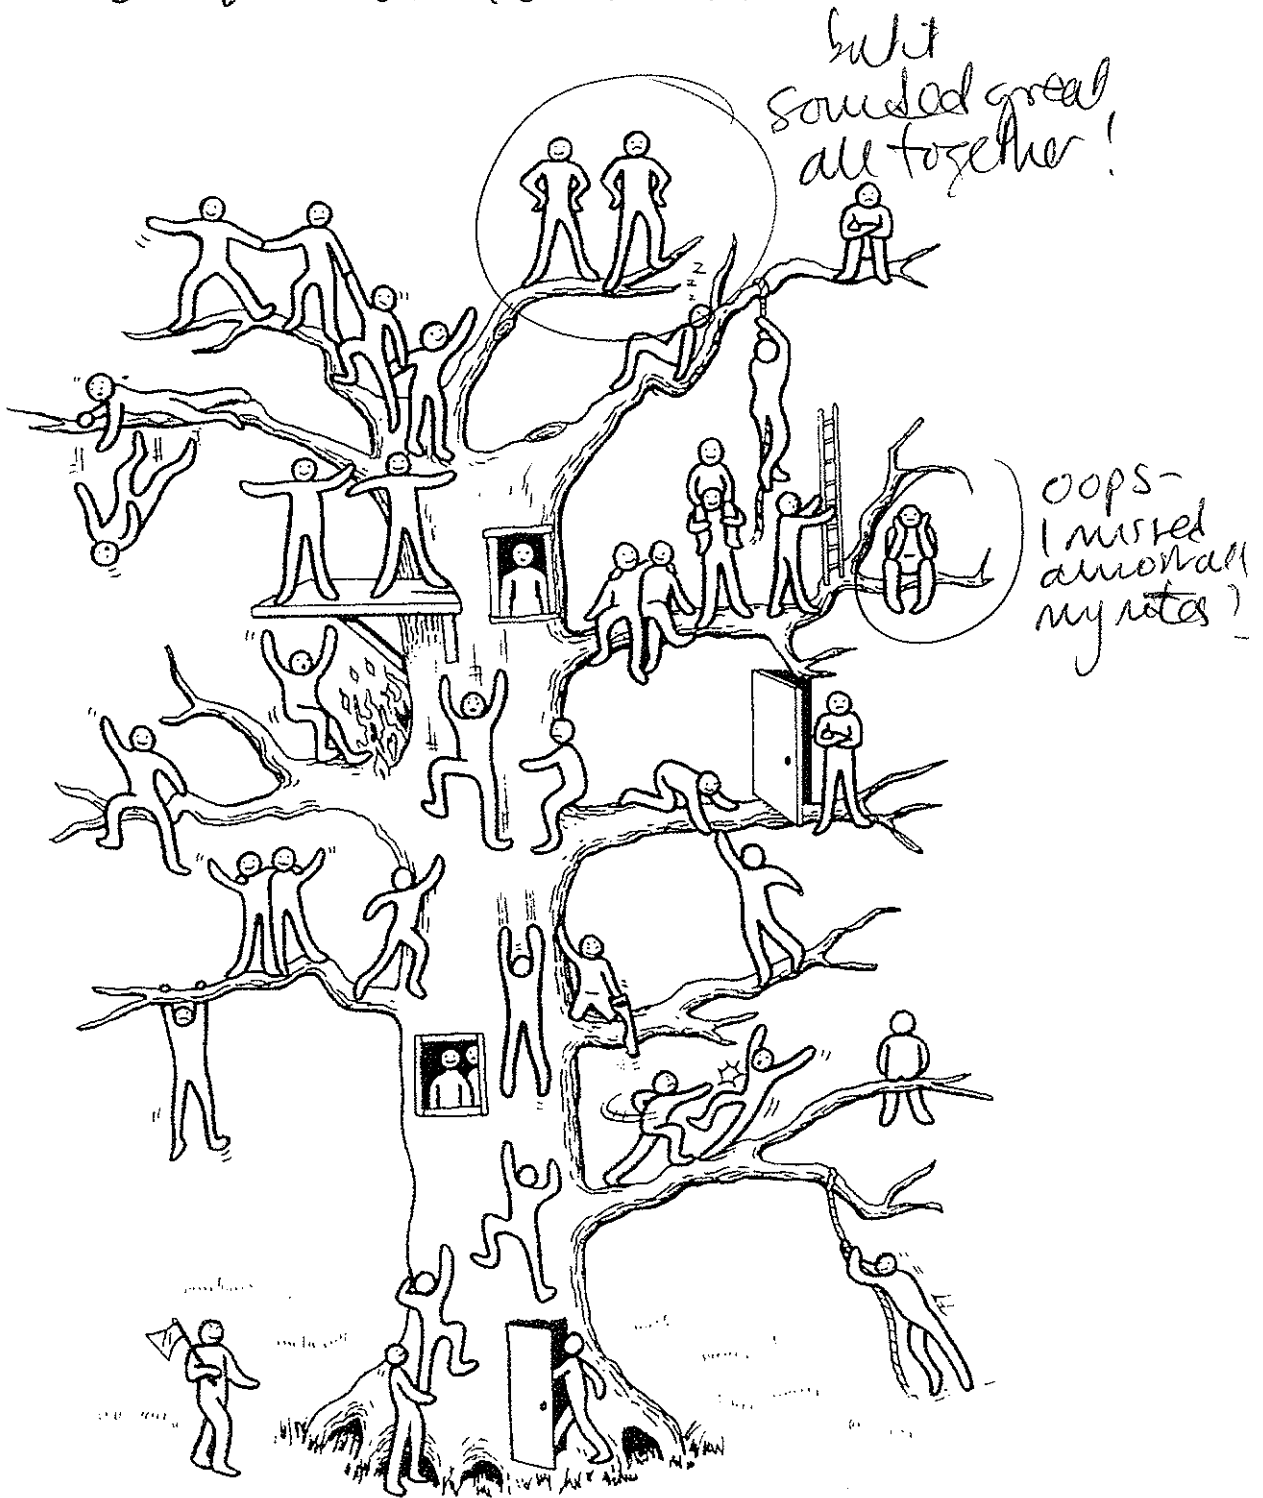 but it
sounded great
all together!
z
z
z
oops -
I missed
almost all
my notes!